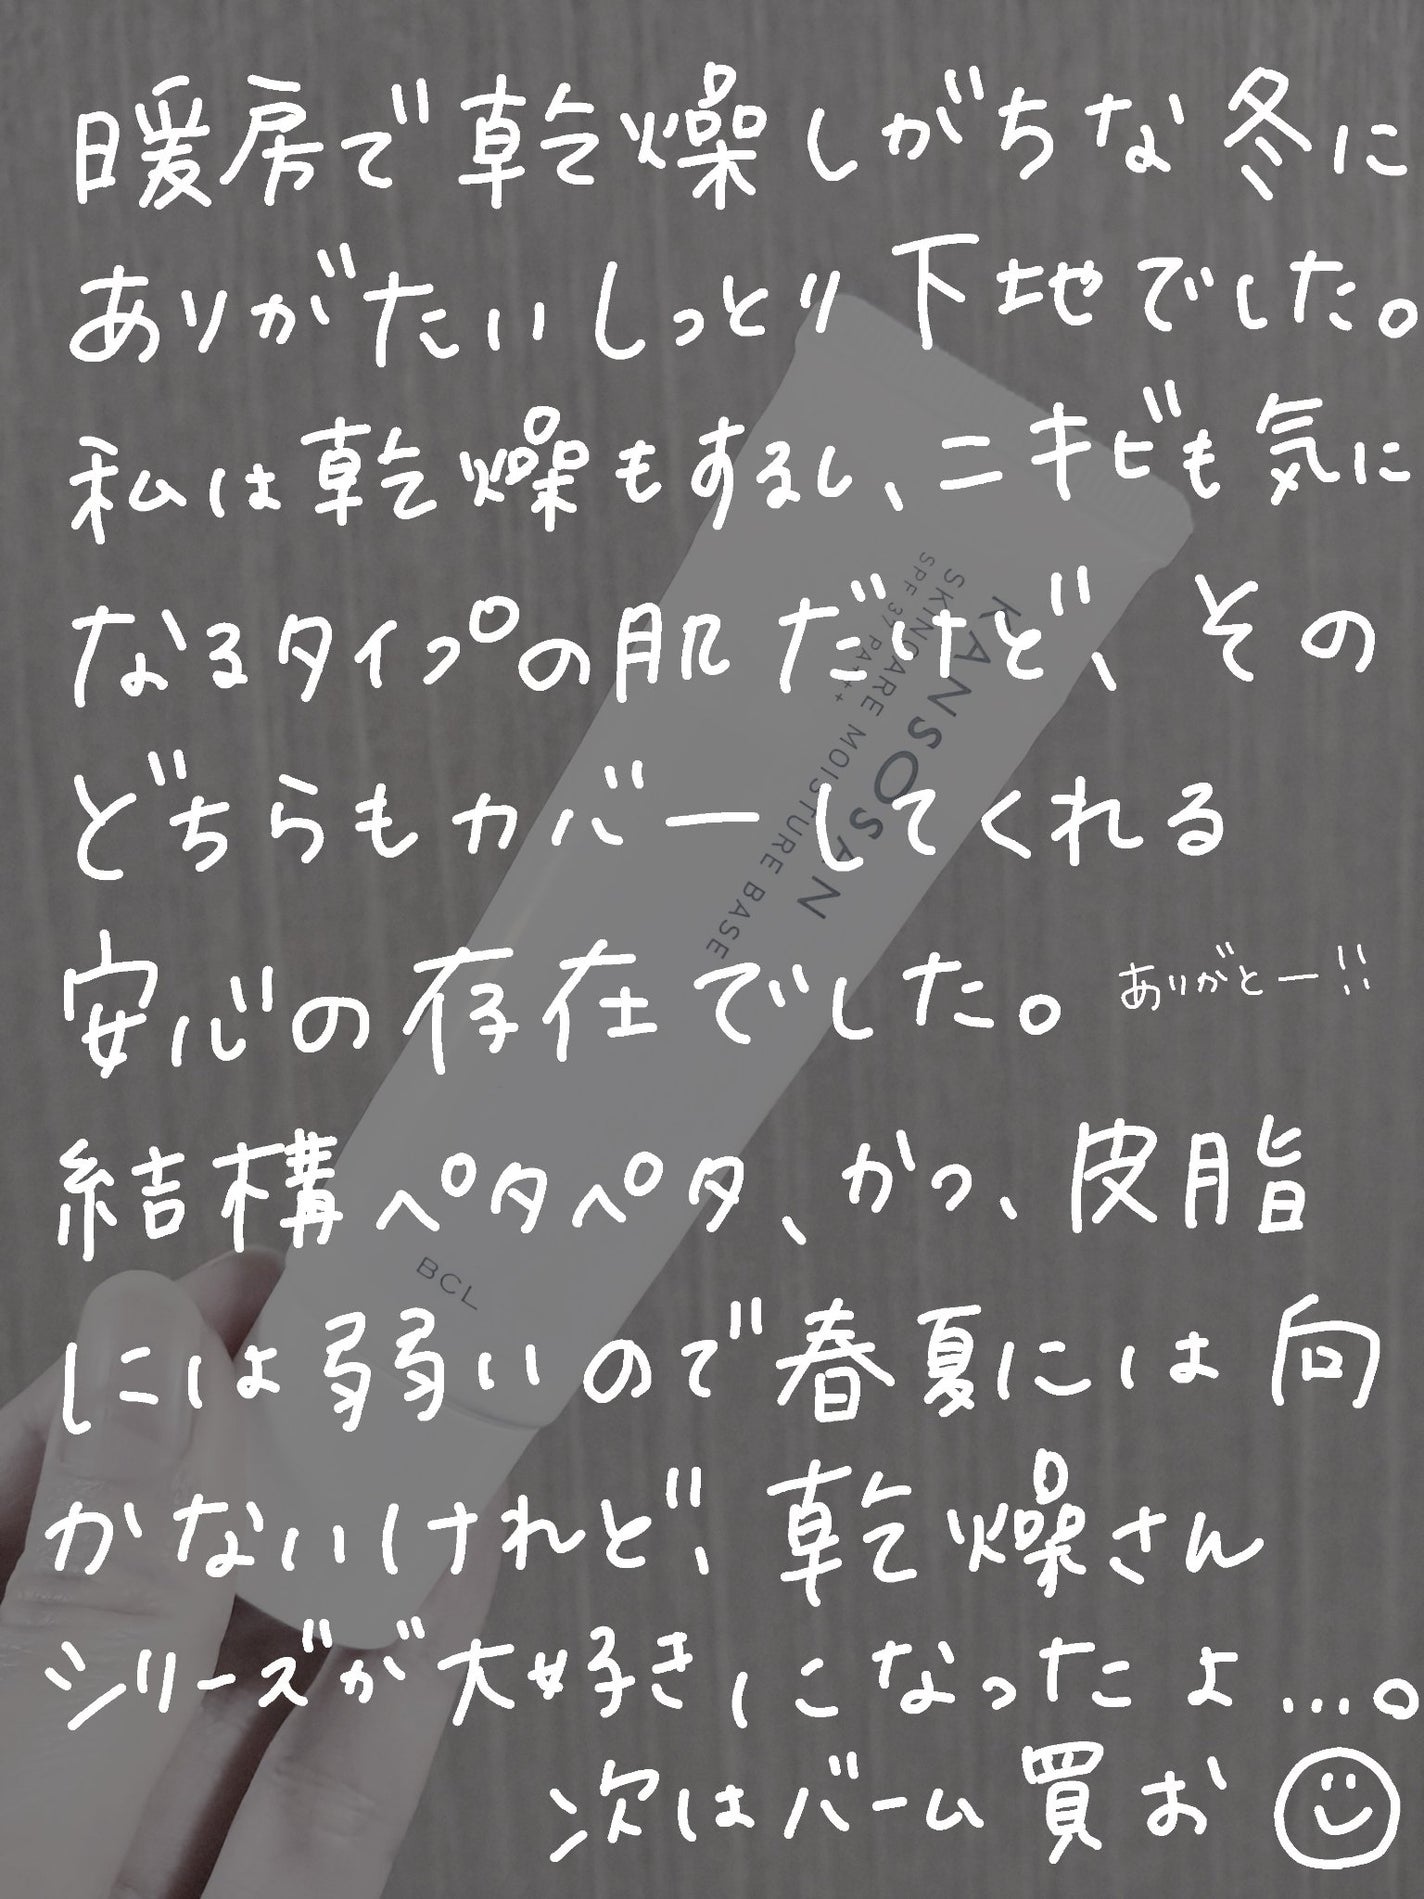 暖房で乾燥しがちな冬に
ありがたいしっとり下地でした。
私は乾燥もするし、ニキビも気に
なるタイプの肌だけど、その
どちらもカバーしてくれる
安心の存在でした。ありがとー!!
結構ペタペタ、かつ、皮脂
には弱いので春夏には向
かないけれど、乾燥さん
シリーズが大好きになったよ…。
次はバーム買お
KANSOSAN
SKINCARE MOISTURE BASE
SPF 37 PA+++
BCL